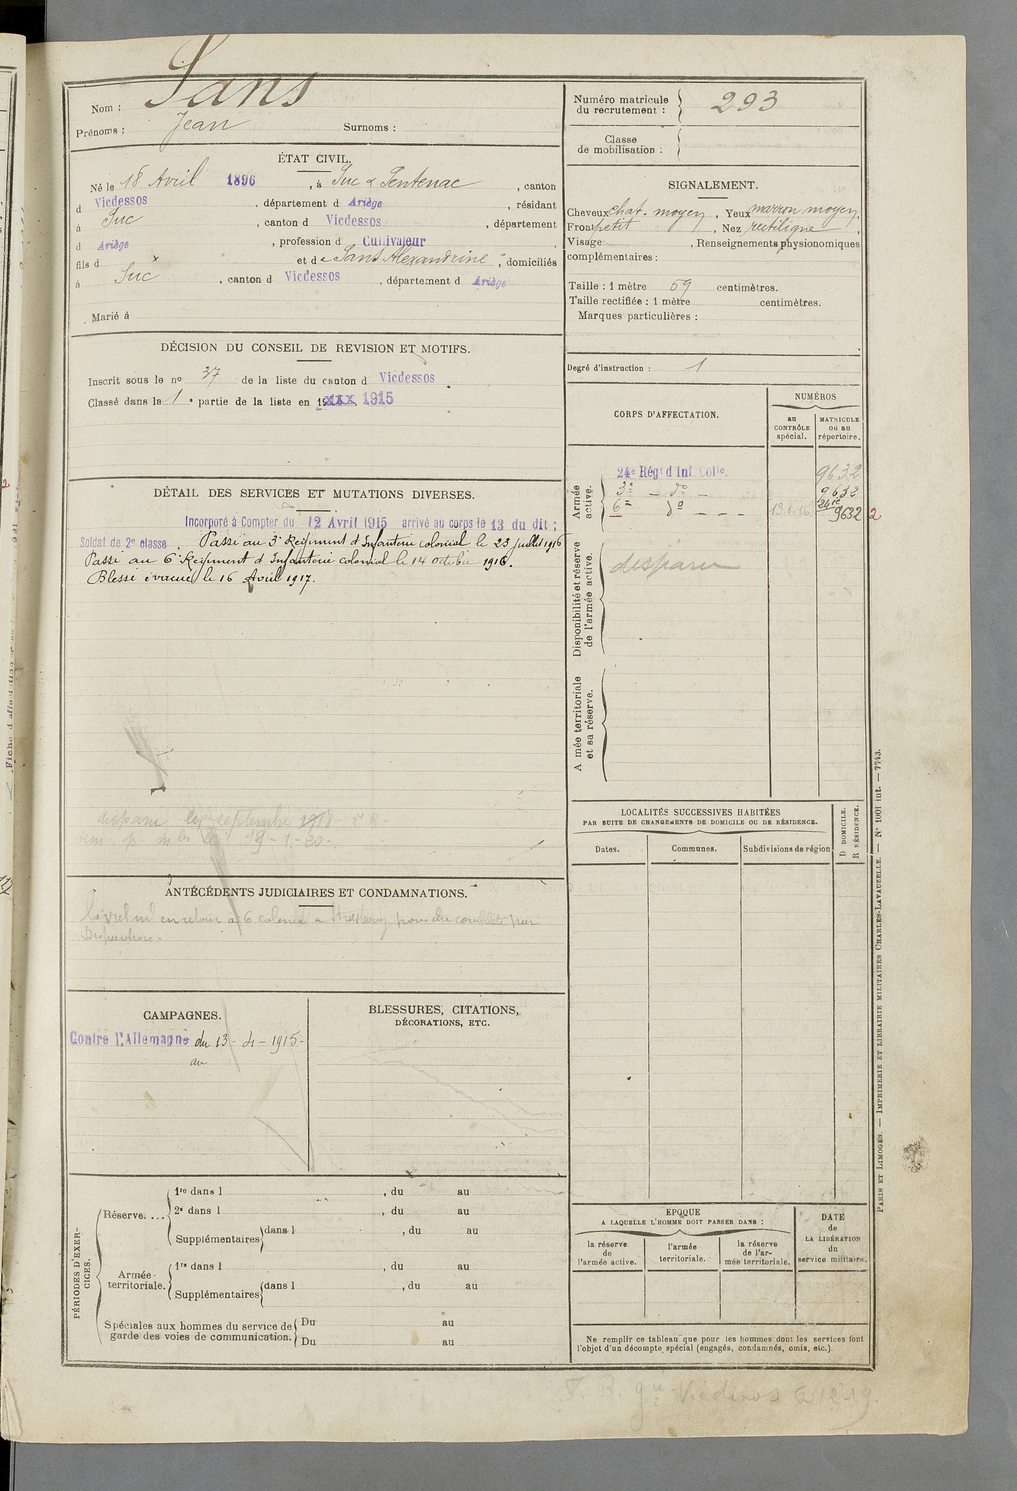 Nom : Sans
Prénoms : Jean Surnoms :
ÉTAT CIVIL.
Né le 18 Avril 1896, à Suc & Sentenac, canton
d Vicdessos, département d Ariège, résidant
à Suc, canton d Vicdessos, département
d Ariège, profession d Cultivateur
fils d x et de Sans Alexandrine, domiciliés
à Suc, canton d Vicdessos, département d Ariège
Marié à
DÉCISION DU CONSEIL DE REVISION ET MOTIFS.
Inscrit sous le no 37 de la liste du canton d Vicdessos.
Classé dans la 1e partie de la liste en 19xxx 1915
DÉTAIL DES SERVICES ET MUTATIONS DIVERSES.
Incorporé à Compter du 12 Avril 1915 arrivé au corps le 13 du dit ;
Soldat de 2e classe. Passé au 3e Regiment d'Infanterie colonial le 23 juillet 1916
Passé au 6e Regiment d'Infanterie colonial le 14 octobre 1916.
Blessé évacué le 16 Avril 1917.
disparu le septembre 1918
19-1-20-
ANTÉCÉDENTS JUDICIAIRES ET CONDAMNATIONS.
en retour au 6 colonial a Strasbourg pour
CAMPAGNES.
Contre l'Allemagne du 13-4-1915-
au
BLESSURES, CITATIONS,
DÉCORATIONS, ETC.
PÉRIODES D'EXERCICES.
Réserve....
1re dans l , du au
2e dans l , du au
Supplémentaires dans l , du au
Armée territoriale.
1re dans l , du au
Supplémentaires dans l , du au
Spéciales aux hommes du service de
garde des voies de communication.
Du au
Du au
Numéro matricule
du recrutement : 293
Classe
de mobilisation :
SIGNALEMENT.
Cheveux chat. moyen, Yeux marron moyen,
Front petit, Nez rectiligne,
Visage , Renseignements physionomiques
complémentaires :
Taille : 1 mètre 69 centimètres.
Taille rectifiée : 1 mètre centimètres.
Marques particulières :
Degré d'instruction : 1
CORPS D'AFFECTATION.
NUMÉROS
au
CONTRÔLE
spécial.
MATRICULE
ou au
répertoire.
Armée
active.
24e Régt d Inf Colle. 9632
3e — do — 9632
24re
6e do — — — 13.1.16 9632 2
Disponibilité et réserve
de l'armée active.
disparu
A mée territoriale
et sa réserve.
LOCALITÉS SUCCESSIVES HABITÉES
PAR SUITE DE CHANGEMENTS DE DOMICILE OU DE RÉSIDENCE.
Dates. Communes. Subdivisions de région
D DOMICILE.
R RÉSIDENCE.
EPOQUE
A LAQUELLE L'HOMME DOIT PASSER DANS :
la réserve
de
l'armée active.
l'armée
territoriale.
la réserve
de l'ar-
mée territoriale.
DATE
de
LA LIBÉRATION
du
service militaire.
Ne remplir ce tableau que pour les hommes dont les services font
l'objet d'un décompte spécial (engagés, condamnés, omis, etc.).
PARIS ET LIMOGES. — IMPRIMERIE ET LIBRAIRIE MILITAIRES CHARLES-LAVAUZELLE. — No 1001 int. — 7743.